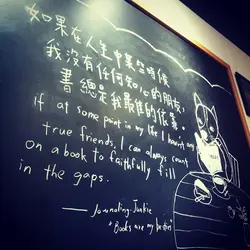 如果在人生中某些時候
我沒有任何知心的朋友,
書總是我最佳的依靠。
if at some point in my life I haven't any
true friends, I can always count
on a book to faithfully fill
in the gaps.
— Journaling Junkie
"Books are my besties"